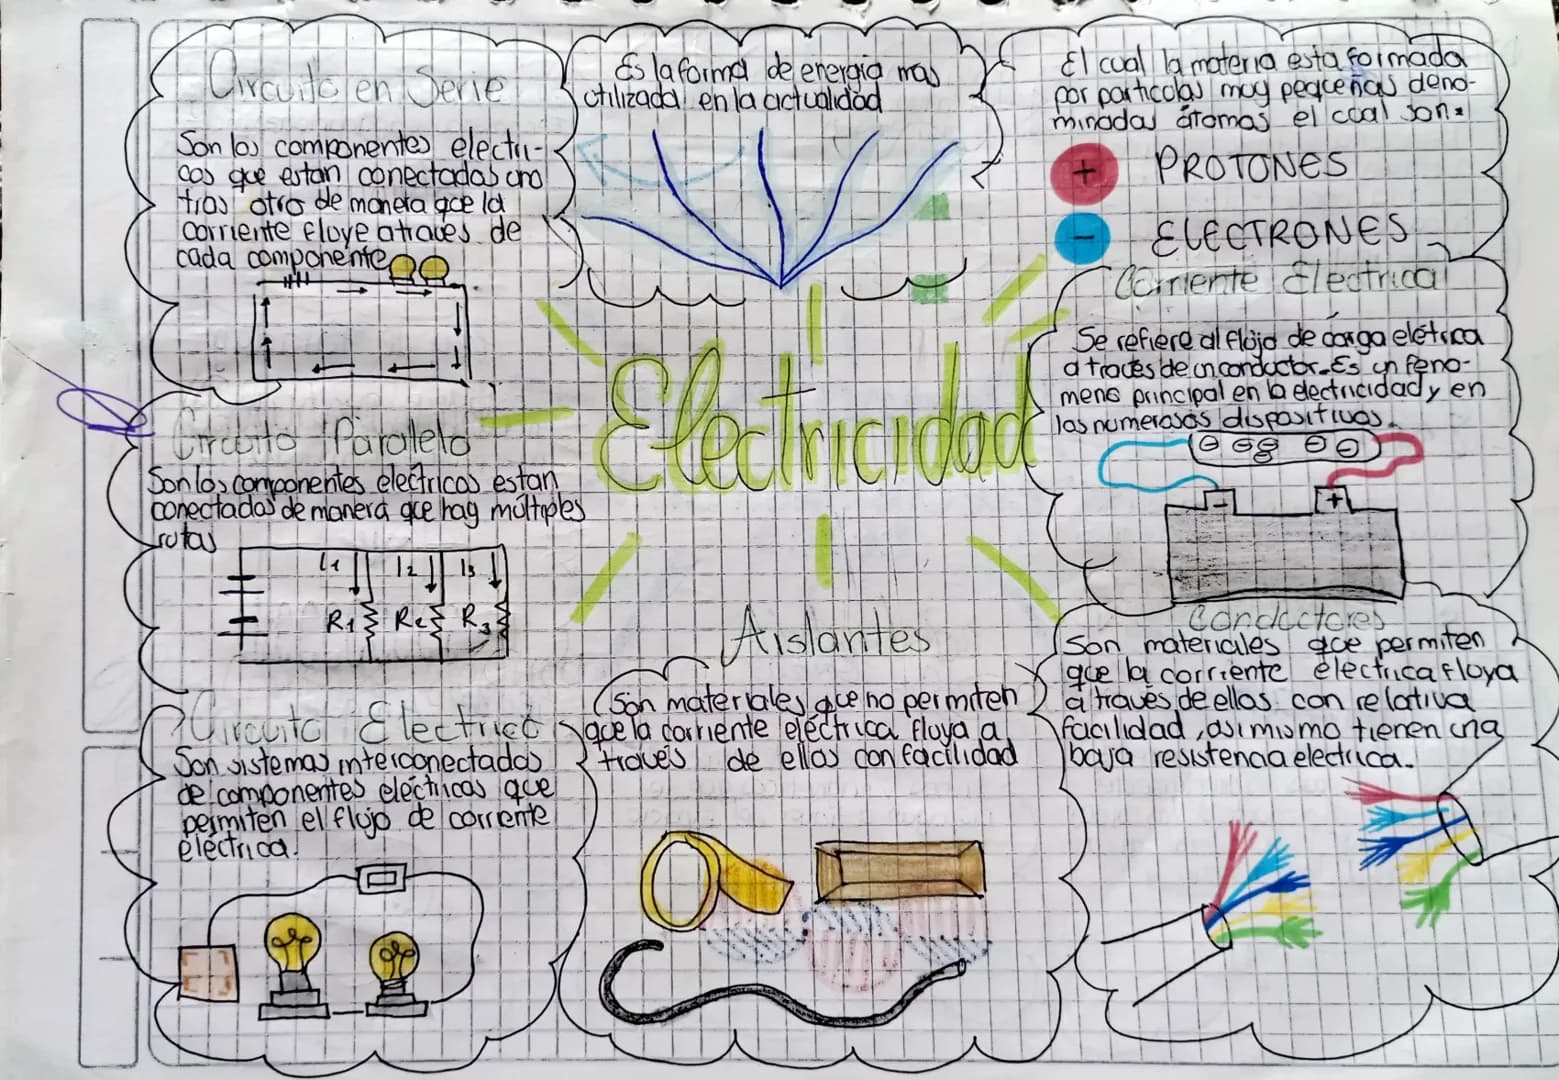 Circuito en Serie
Son los componentes electri-
cos que estan conectadas uno
tras otro de manera que la
corriente fluye atraves de
cada componente
Es la forma de energia mas
utilizada en la actualidad
El cual la materia esta formada
por particulas muy pequeñas deno-
minadas átomas el cual son:
+ PROTONES
- ELECTRONES
Corriente Electrica
Se refiere al flujo de carga elétrica
a través de un conductor. Es un feno-
meno principal en la electricidad y en
las numerosas dispositivos.
- +
Electricidad
Circuito Paralelo
Son los componentes eléctricos estan
conectados de manera que hay múltiples
rutas
I1 I2 I3
R1 R2 R3
Circuito Electrico
Son sistemas interconectados
de componentes eléctricas que
permiten el flujo de corriente
eléctrica.
Aislantes
Son materiales que no permiten
que la corriente eléctrica fluya a
través de ellos con facilidad
Conductores
Son materiales que permiten
que la corriente eléctrica fluya
a través de ellos con relativa
facilidad, asimismo tienen una
baja resistencia electrica.